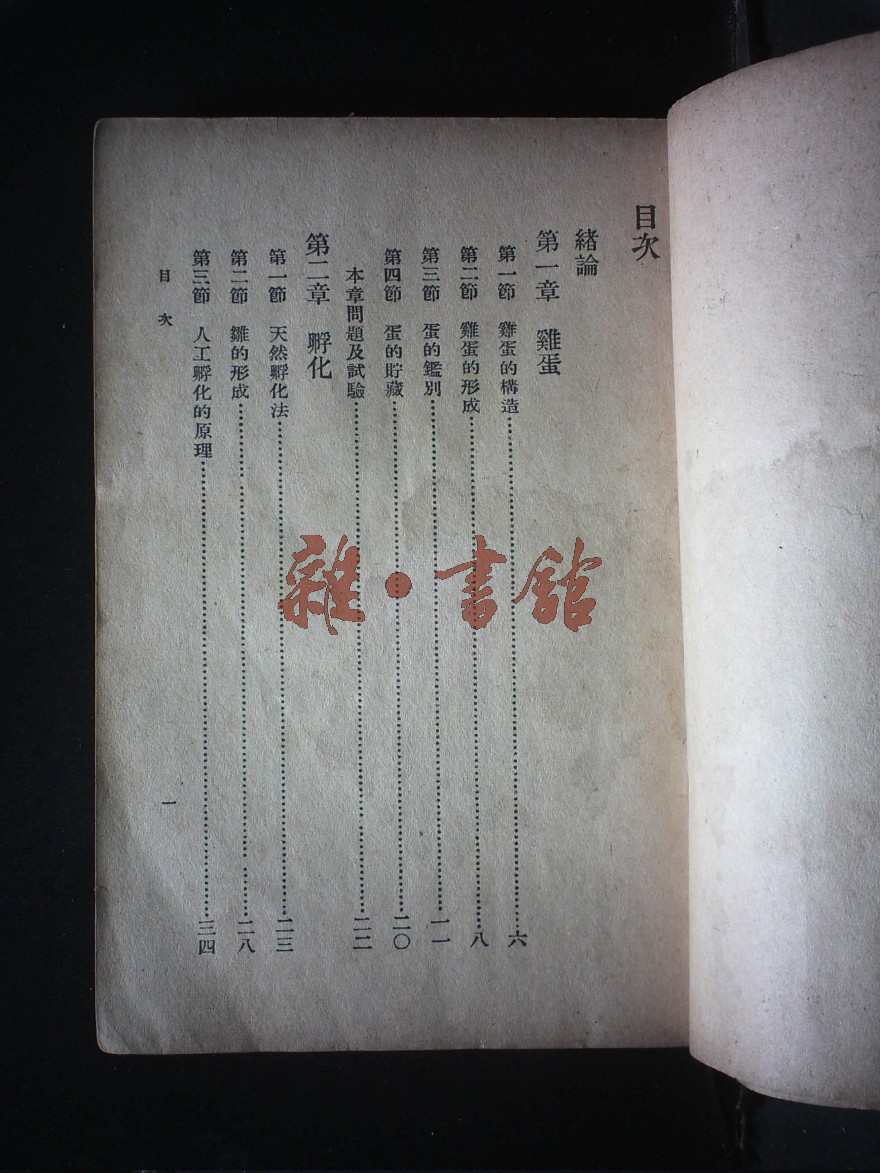 目次
緒論
第一章 雞蛋
第一節 雞蛋的構造……六
第二節 雞蛋的形成……八
第三節 蛋的鑑別……一一
第四節 蛋的貯藏……二〇
本章問題及試驗……二二
第二章 孵化
第一節 天然孵化法……二三
第二節 雛的形成……二八
第三節 人工孵化的原理……三四
目次 一
雜·書館